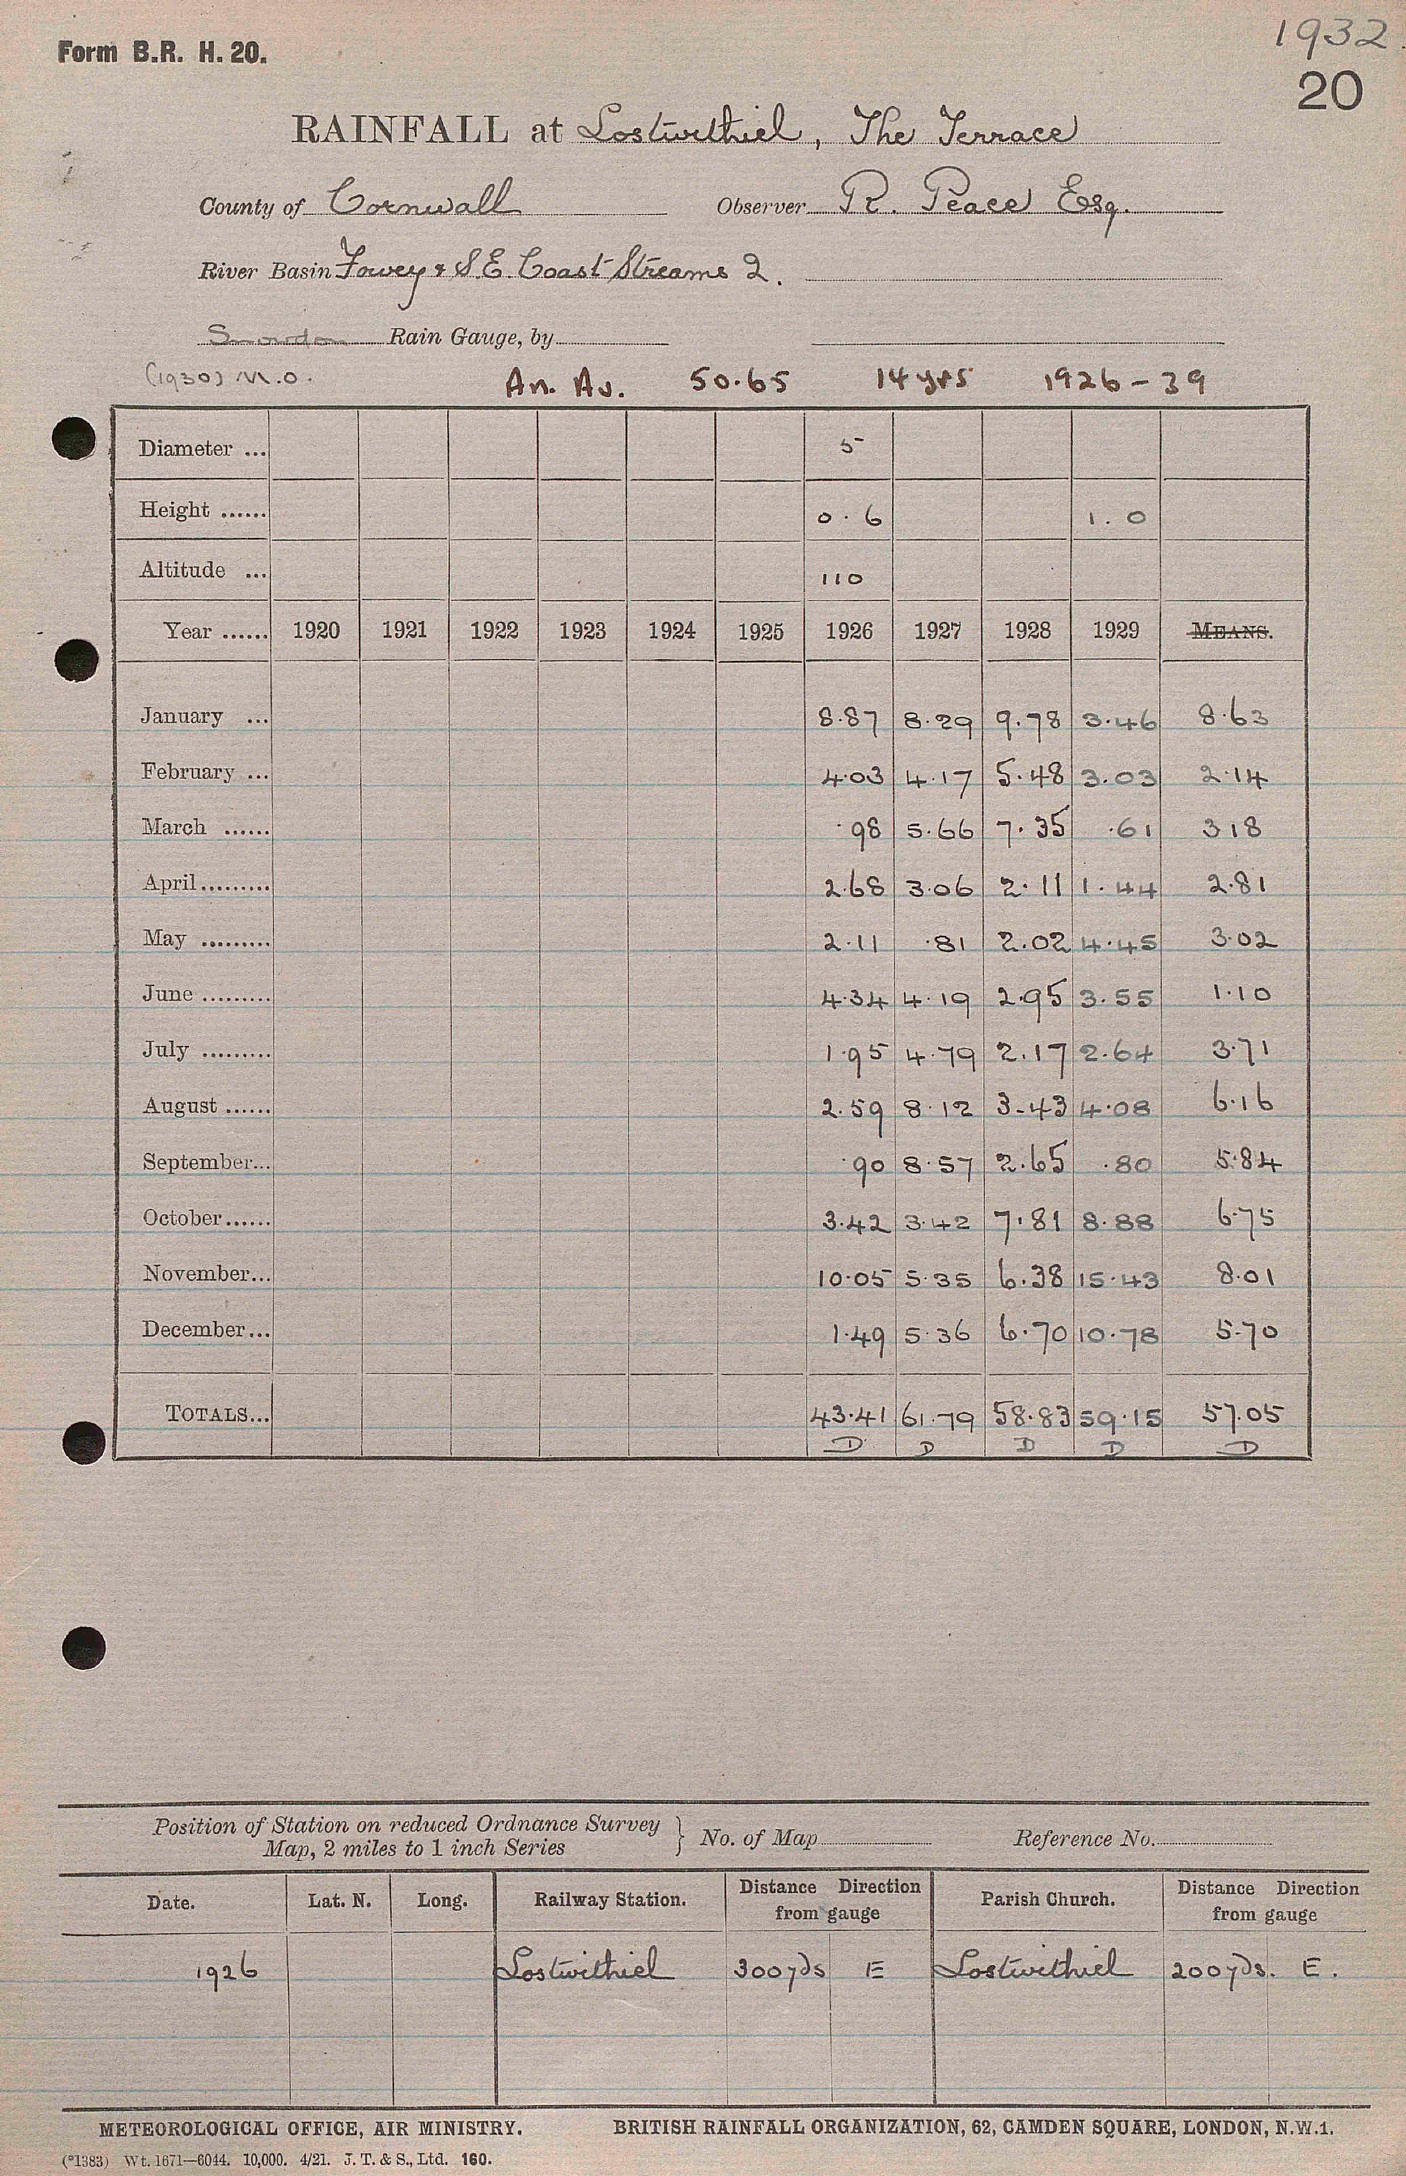 1932.
Form B.R. H. 20.
20
RAINFALL at Lostwithiel, The Terrace
County of Cornwall Observer R. Peace Esq.
River Basin Fowey & S.E. Coast Streams 2.
Snowdon Rain Gauge, by
(1930) M.O. An. Av. 50.65 14 yrs 1926 - 39
Diameter ... 5
Height ...... 0.6 1.0
Altitude ... 110
Year ...... 1920 1921 1922 1923 1924 1925 1926 1927 1928 1929 MEANS.
January ... 8.87 8.29 9.78 3.46 8.63
February ... 4.03 4.17 5.48 3.03 2.14
March ...... .98 5.66 7.35 .61 3 18
April......... 2.68 3.06 2.11 1.44 2.81
May ......... 2.11 .81 2.02 4.45 3.02
June ......... 4.34 4.19 2.95 3.55 1.10
July ......... 1.95 4.79 2.17 2.64 3.71
August ...... 2.59 8.12 3.43 4.08 6.16
September... .90 8.57 2.65 .80 5.84
October...... 3.42 3.42 7.81 8.88 6.75
November... 10.05 5.35 6.38 15.43 8.01
December... 1.49 5.36 6.70 10.78 5.70
TOTALS... 43.41 61.79 58.83 59.15 57.05
D D D D D
Position of Station on reduced Ordnance Survey
Map, 2 miles to 1 inch Series } No. of Map Reference No.
Date. Lat. N. Long. Railway Station. Distance Direction from gauge Parish Church. Distance Direction from gauge
1926 Lostwithiel 300yds E Lostwithiel 200yds. E.
METEOROLOGICAL OFFICE, AIR MINISTRY. BRITISH RAINFALL ORGANIZATION, 62, CAMDEN SQUARE, LONDON, N.W.1.
(*1383) Wt. 1671—6044. 10,000. 4/21. J. T. & S., Ltd. 160.